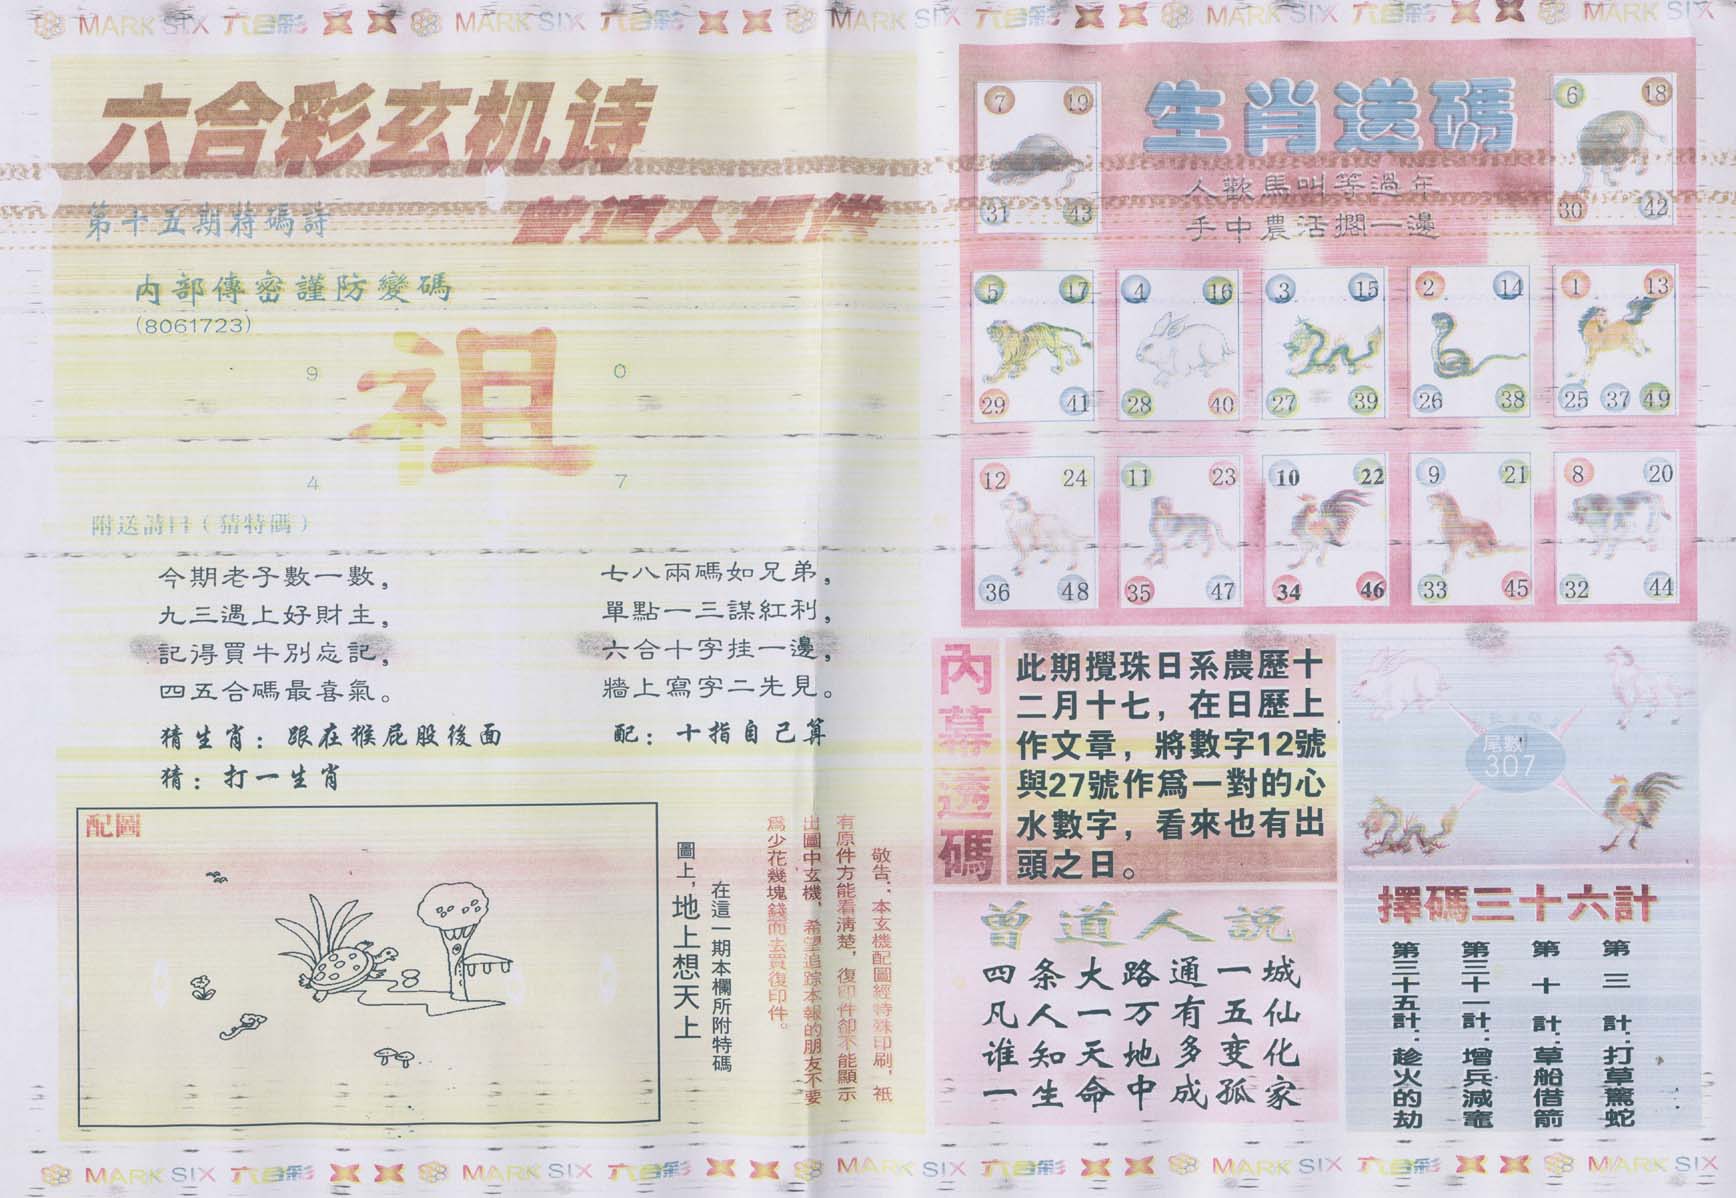 MARK SIX 六合彩 MARK SIX 六合彩 MARK SIX 六合彩 MARK SIX 六合彩 MARK SIX
六合彩玄机诗
曾道人提供
第十五期特碼詩
内部傳密謹防變碼
(8061723)
9 0
祖
4 7
附送詩曰（猜特碼）
今期老子數一數，
九三遇上好財主，
記得買牛別忘記，
四五合碼最喜氣。
七八兩碼如兄弟，
單點一三謀紅利，
六合十字挂一邊，
牆上寫字二先見。
猜生肖：跟在猴屁股後面
配：十指自己算
猜：打一生肖
配圖
在這一期本欄所附特碼
圖上，地上想天上
敬告：本玄機配圖經特殊印刷，祇
有原件方能看清楚，復印件卻不能顯示
出圖中玄機，希望追踪本報的朋友不要
爲少花幾塊錢而去買復印件。
生肖送碼
人歡馬叫等過年
手中農活擱一邊
7 19
31 43
6 18
30 42
5 17
29 41
4 16
28 40
3 15
27 39
2 14
26 38
1 13
25 37 49
12 24
36 48
11 23
35 47
10 22
34 46
9 21
33 45
8 20
32 44
内幕透碼
此期攪珠日系農歷十
二月十七，在日歷上
作文章，將數字12號
與27號作爲一對的心
水數字，看來也有出
頭之日。
尾數
307
曾道人説
四条大路通一城
凡人一万有五仙
谁知天地多变化
一生命中成孤家
擇碼三十六計
第三計：打草驚蛇
第十計：草船借箭
第三十一計：增兵減竈
第三十五計：趁火的劫
MARK SIX 六合彩 MARK SIX 六合彩 MARK SIX 六合彩 MARK SIX 六合彩 MARK SIX